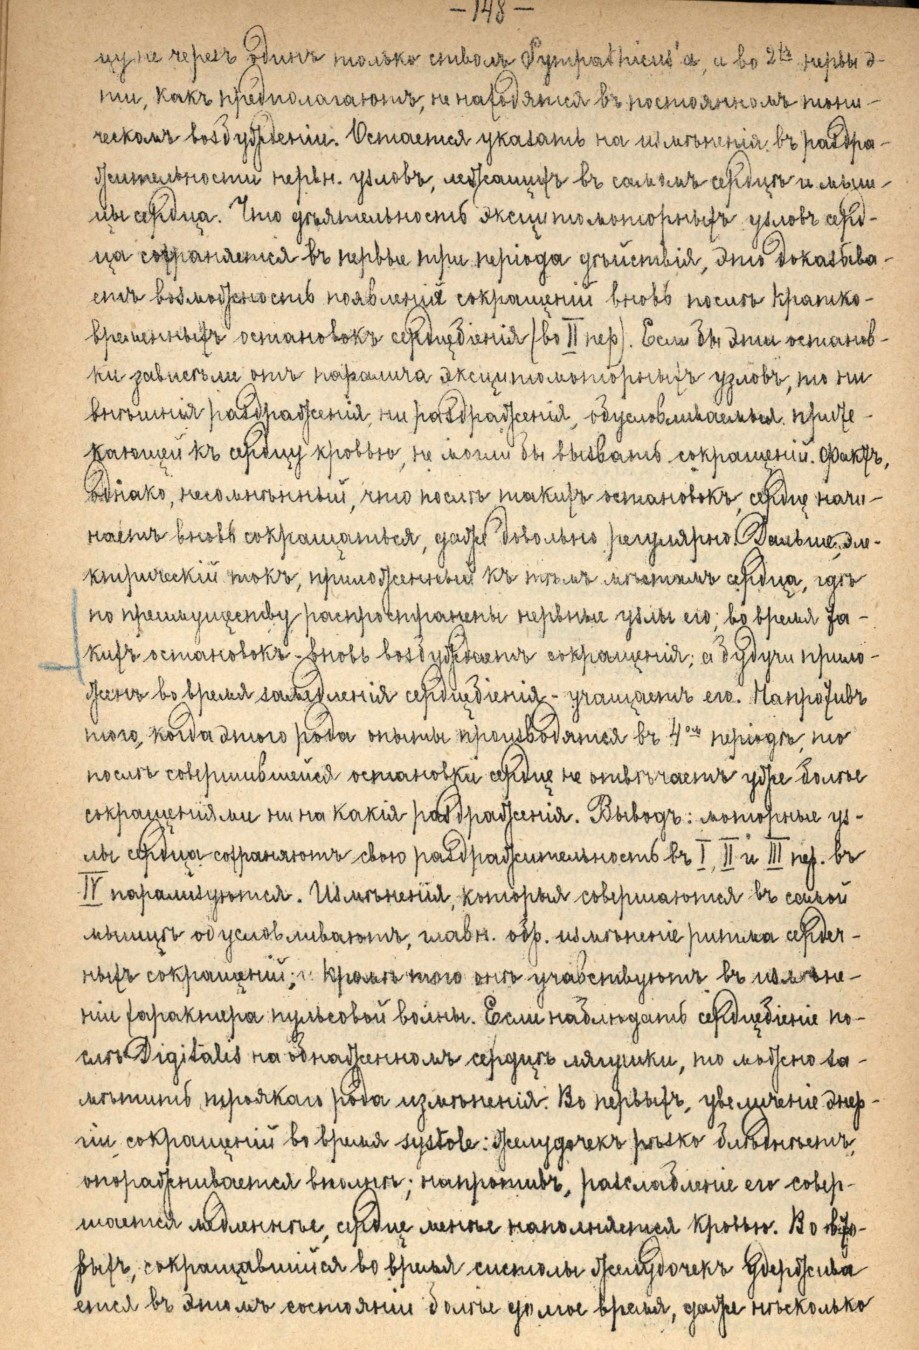 —148—
цу не черезъ один только стволъ Sympathicus'а, а во 2ыхъ нервы э-
ти, какъ предполагаютъ, не находятся въ постоянномъ тони-
ческомъ возбужденіи. Остается указать на измѣненія въ раздра-
жительности нервн. узловъ, лежащихъ въ самомъ сердцѣ и мыш-
цы сердца. Что дѣятельность эксцитомоторныхъ узловъ серд-
ца сохраняется въ первые три періода дѣйствія, это доказыва-
етъ возможность появленія сокращеній вновь послѣ кратко-
временныхъ остановокъ сердцебіенія (во II пер). Если бы эти останов-
ки зависѣли отъ паралича эксцитомоторныхъ узловъ, то ни
внѣшнія раздраженія, ни раздраженія, обусловливаемыя прите-
кающей къ сердцу кровью, не могли бы вызвать сокращеній. Фактъ,
однако, несомнѣнный, что послѣ такихъ остановокъ, сердце начи-
наетъ вновь сокращаться, даже довольно регулярно. Дальше, эле-
ктрическій токъ, приложенный къ тѣмъ мѣстамъ сердца, гдѣ
по преимуществу распространены нервные узлы его, во время та-
кихъ остановокъ - вновь возбуждаетъ сокращенія; а будучи прило-
женъ во время замедленія сердцебіенія - учащаетъ его. Напротивъ
того, когда этого рода опыты производятся въ 4омъ періодѣ, то
послѣ совершившейся остановки сердце не отвѣчаетъ уже болѣе
сокращеніями ни на какія раздраженія. Выводъ: моторные уз-
лы сердца сохраняютъ свою раздражительность въ I, II и III пер. въ
IV парализуются. Измѣненія, которыя совершаются въ самой
мышцѣ обусловливаютъ, главн. обр. измѣненіе ритма сердеч-
ныхъ сокращеній; и кромѣ того онѣ участвуютъ въ измѣне-
ніи характера пульсовой волны. Если наблюдать сердцебіеніе по-
слѣ Digitalis на обнаженномъ сердцѣ лягушки, то можно за-
мѣтить троякаго рода измѣненія. Во первыхъ, увеличеніе энер-
гіи сокращеній во время systole: желудочекъ рѣзко блѣднѣетъ,
опоражнивается вполнѣ; напротивъ, разслабленіе его совер-
шается медленнѣе, сердце менѣе наполняется кровью. Во вто-
рыхъ, сокращавшійся во время систолы желудочекъ удержива
ется въ этомъ состояніи болѣе долгое время, даже нѣсколько